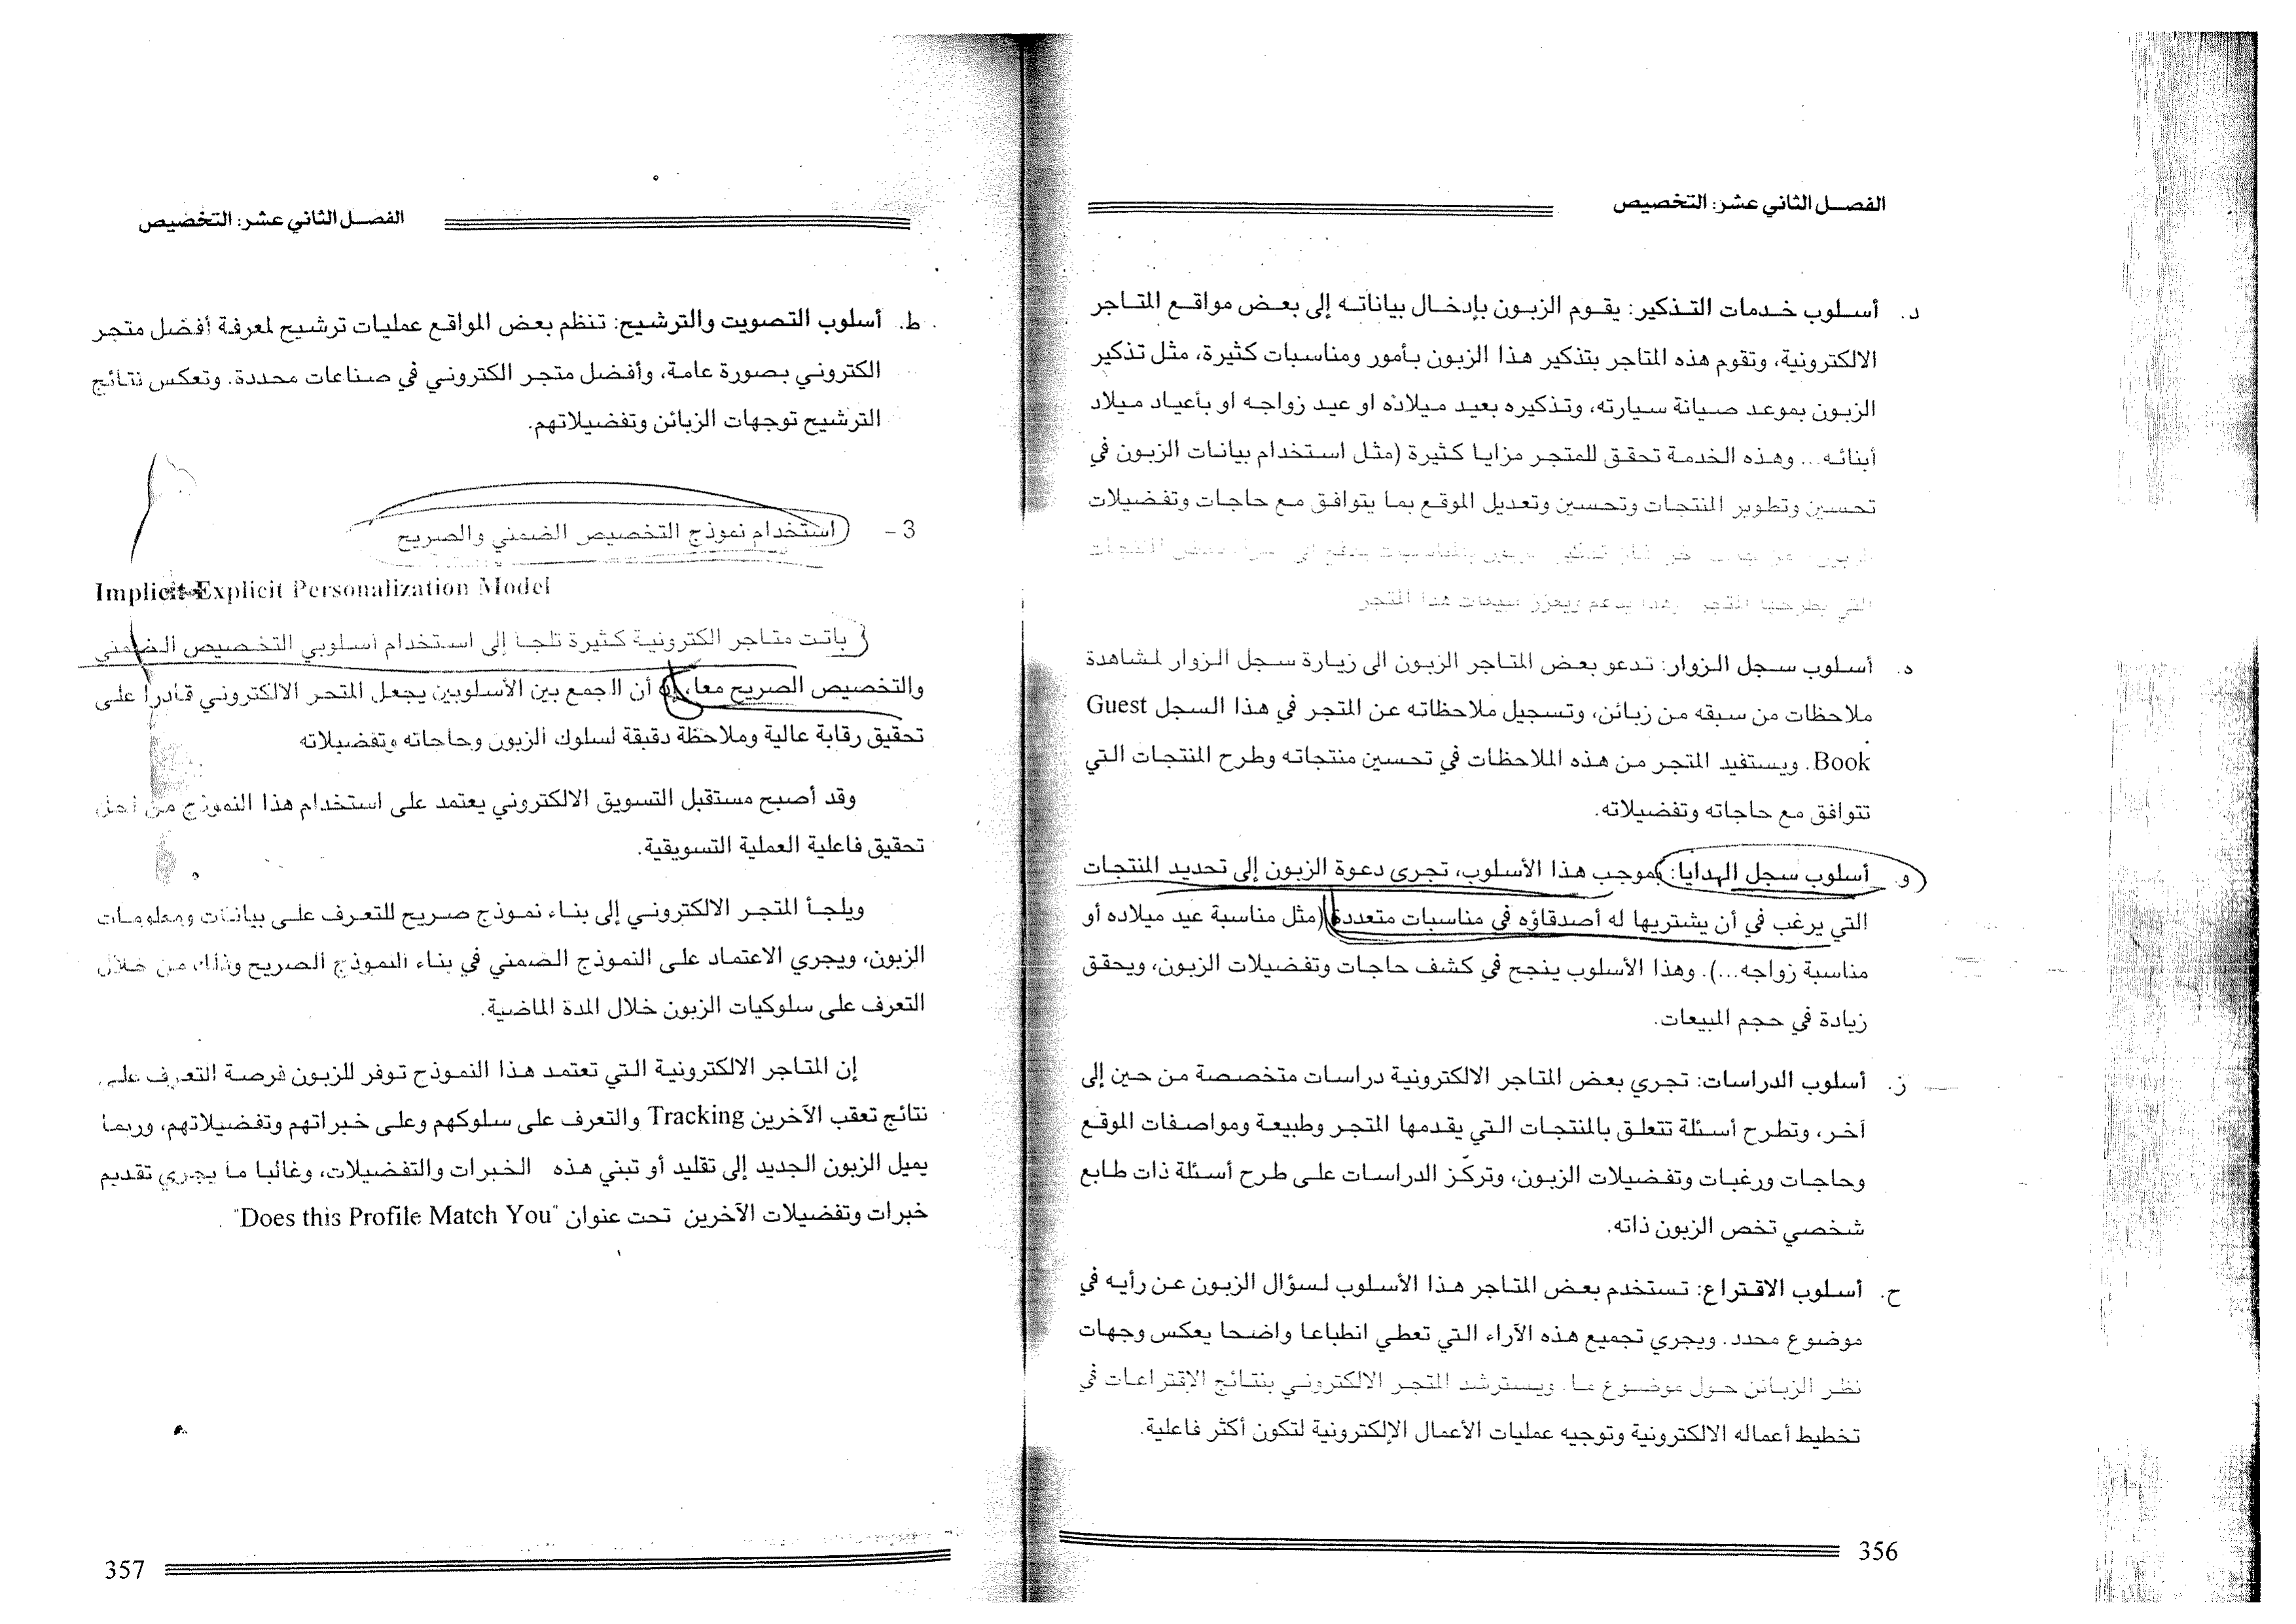 الفصل الثاني عشر: التخصيص
د. أسلوب خدمات التذكير: يقوم الزبون بإدخال بياناته إلى بعض مواقع المتاجر
الالكترونية، وتقوم هذه المتاجر بتذكير هذا الزبون بأمور ومناسبات كثيرة، مثل تذكير
الزبون بموعد صيانة سيارته، وتذكيره بعيد ميلاده او عيد زواجه او بأعياد ميلاد
أبنائه... وهذه الخدمة تحقق للمتجر مزايا كثيرة (مثل استخدام بيانات الزبون في
تحسين وتطوير المنتجات وتحسين وتعديل الموقع بما يتوافق مع حاجات وتفضيلات
التي يطرحها المتجر وهذا يدعم ويعزز مبيعات هذا المتجر
ه. أسلوب سجل الزوار: تدعو بعض المتاجر الزبون الى زيارة سجل الزوار لمشاهدة
ملاحظات من سبقه من زبائن، وتسجيل ملاحظاته عن المتجر في هذا السجل Guest
Book. ويستفيد المتجر من هذه الملاحظات في تحسين منتجاته وطرح المنتجات التي
تتوافق مع حاجاته وتفضيلاته.
و. أسلوب سجل الهدايا: بموجب هذا الأسلوب، تجرى دعوة الزبون إلى تحديد المنتجات
التي يرغب في أن يشتريها له أصدقاؤه في مناسبات متعددة (مثل مناسبة عيد ميلاده أو
مناسبة زواجه...). وهذا الأسلوب ينجح في كشف حاجات وتفضيلات الزبون، ويحقق
زيادة في حجم المبيعات.
ز. أسلوب الدراسات: تجري بعض المتاجر الالكترونية دراسات متخصصة من حين إلى
آخر، وتطرح أسئلة تتعلق بالمنتجات التي يقدمها المتجر وطبيعة ومواصفات الموقع
وحاجات ورغبات وتفضيلات الزبون، وتركّز الدراسات على طرح أسئلة ذات طابع
شخصي تخص الزبون ذاته.
ح. أسلوب الاقتراع: تستخدم بعض المتاجر هذا الأسلوب لسؤال الزبون عن رأيه في
موضوع محدد. ويجري تجميع هذه الآراء التي تعطي انطباعا واضحا يعكس وجهات
نظر الزبائن حول موضوع ما. ويسترشد المتجر الالكتروني بنتائج الاقتراعات في
تخطيط أعماله الالكترونية وتوجيه عمليات الأعمال الإلكترونية لتكون أكثر فاعلية.
356
الفصل الثاني عشر: التخصيص
ط. أسلوب التصويت والترشيح: تنظم بعض المواقع عمليات ترشيح لمعرفة أفضل متجر
الكتروني بصورة عامة، وأفضل متجر الكتروني في صناعات محددة. وتعكس نتائج
الترشيح توجهات الزبائن وتفضيلاتهم.
3 – استخدام نموذج التخصيص الضمني والصريح
Implicit-Explicit Personalization Model
باتت متاجر الكترونية كثيرة تلجأ إلى استخدام أسلوبي التخصيص الضمني
والتخصيص الصريح معا، إذ أن الجمع بين الأسلوبين يجعل المتجر الالكتروني قادرا على
تحقيق رقابة عالية وملاحظة دقيقة لسلوك الزبون وحاجاته وتفضيلاته
وقد أصبح مستقبل التسويق الالكتروني يعتمد على استخدام هذا النموذج من أجل
تحقيق فاعلية العملية التسويقية.
ويلجأ المتجر الالكتروني إلى بناء نموذج صريح للتعرف على بيانات ومعلومات
الزبون، ويجري الاعتماد على النموذج الضمني في بناء النموذج الصريح وذلك من خلال
التعرف على سلوكيات الزبون خلال المدة الماضية.
إن المتاجر الالكترونية التي تعتمد هذا النموذج توفر للزبون فرصة التعرف على
نتائج تعقب الآخرين Tracking والتعرف على سلوكهم وعلى خبراتهم وتفضيلاتهم، وربما
يميل الزبون الجديد إلى تقليد أو تبني هذه الخبرات والتفضيلات، وغالبا ما يجري تقديم
خبرات وتفضيلات الآخرين تحت عنوان "Does this Profile Match You".
357